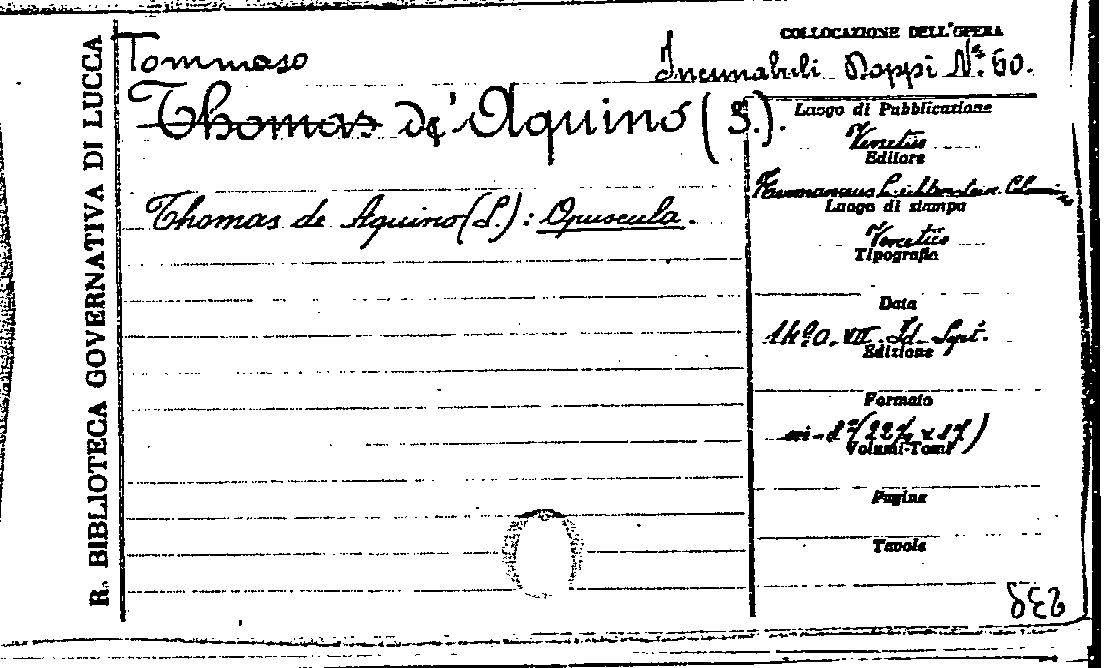 R. BIBLIOTECA GOVERNATIVA DI LUCCA
Tommaso
Thomas de' Aquino (S.).
Thomas de Aquino (S.): Opuscula.
COLLOCAZIONE DELL'OPERA
Incunabuli Doppi N.º 60.
Luogo di Pubblicazione
Venetiis
Editore
Hermannus Lichtenstein
Luogo di stampa
Venetiis
Tipografia
Data
1490. VII. Id. Sept.
Edizione
Formato
in-4º
Volumi-Tomi
Pagine
Tavole